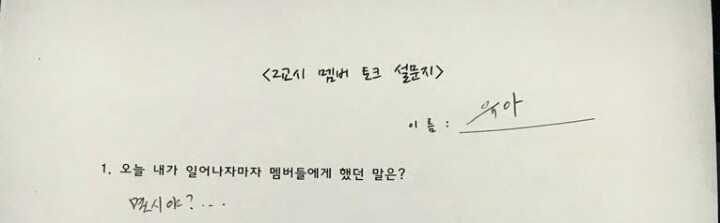 <2교시 멤버 토크 설문지>
이름 : 유아
1. 오늘 내가 일어나자마자 멤버들에게 했던 말은?
몇시야?...